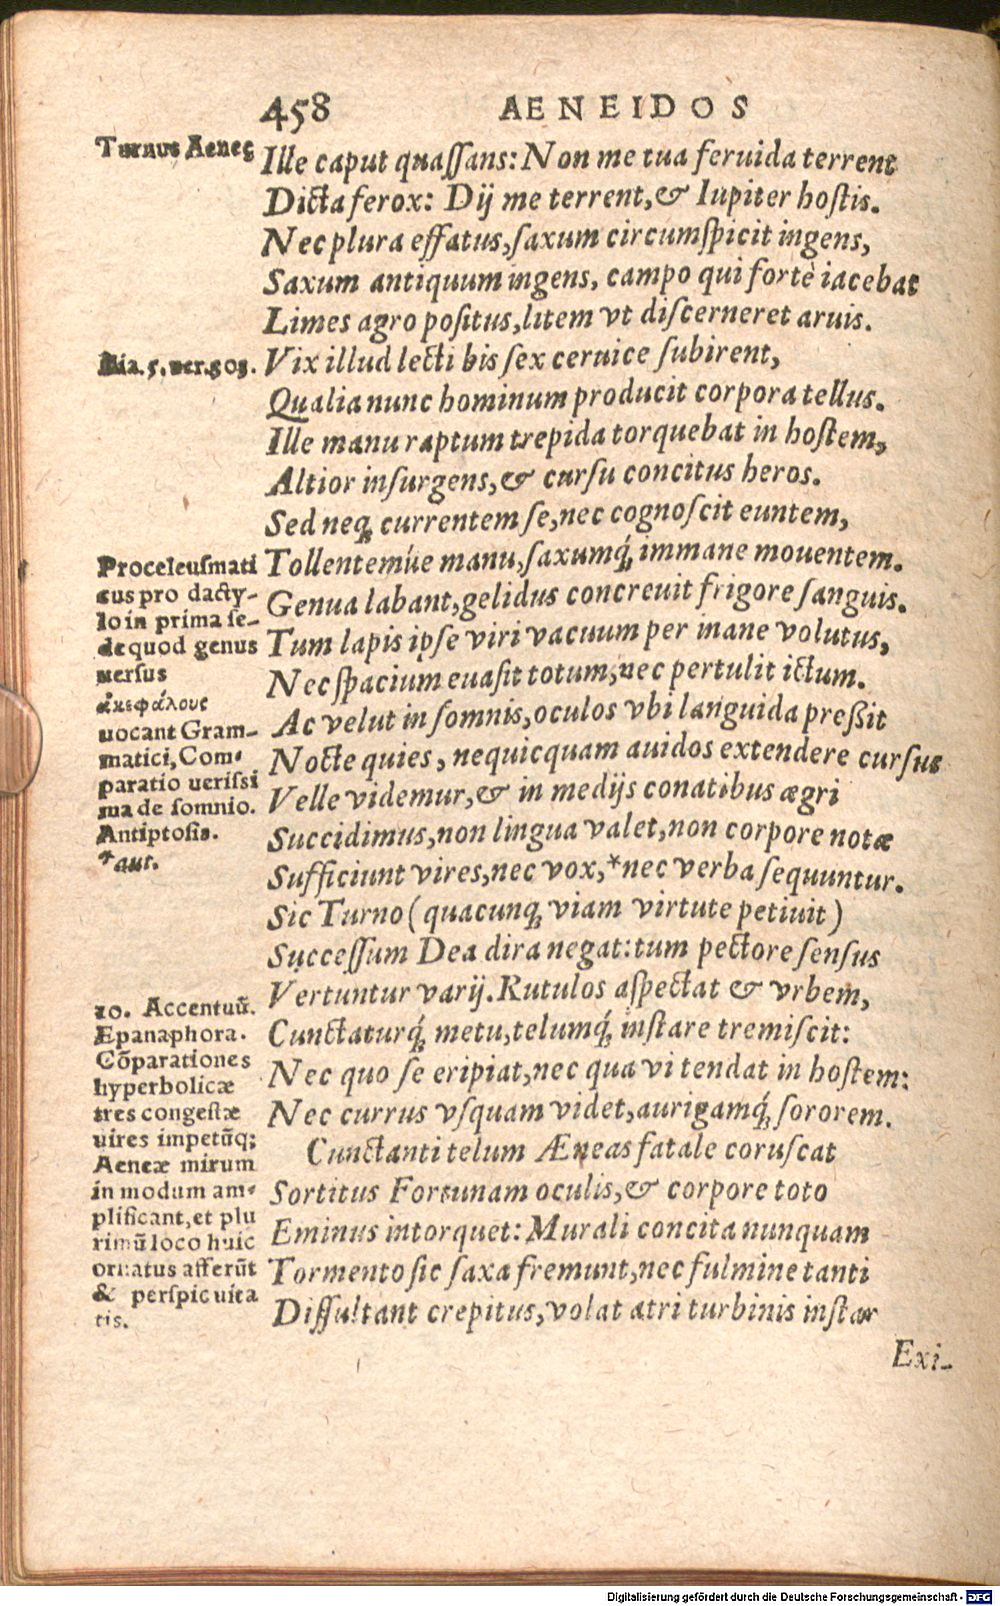 458 AENEIDOS
Turnus Aeneę
Ille caput quaſſans: Non me tua feruida terrent
Dicta ferox: Dij me terrent, & Iupiter hoſtis.
Nec plura effatus, ſaxum circumſpicit ingens,
Saxum antiquum ingens, campo qui fortè iacebat
Limes agro poſitus, litem vt diſcerneret aruis.
Ilia. 5. uer. 303.
Vix illud lecti bis ſex ceruice ſubirent,
Qualia nunc hominum producit corpora tellus.
Ille manu raptum trepida torquebat in hoſtem,
Altior inſurgens, & curſu concitus heros.
Sed neq; currentem ſe, nec cognoſcit euntem,
Tollentemúe manu, ſaxumq́; immane mouentem.
Genua labant, gelidus concreuit frigore ſanguis.
Tum lapis ipſe viri vacuum per inane volutus,
Nec ſpacium euaſit totum, nec pertulit ictum.
Ac velut in ſomnis, oculos vbi languida preßit
Nocte quies, nequicquam auidos extendere curſus
Velle videmur, & in medijs conatibus ægri
Succidimus, non lingua valet, non corpore notæ
Sufficiunt vires, nec vox, *nec verba ſequuntur.
Sic Turno (quacunq; viam virtute petiuit)
Succeſſum Dea dira negat: tum pectore ſenſus
Vertuntur varij. Rutulos aſpectat & vrbem,
Cunctaturq́; metu, telumq́; inſtare tremiſcit:
Nec quo ſe eripiat, nec qua vi tendat in hoſtem:
Nec currus vſquam videt, aurigamq́; ſororem.
Cunctanti telum Æneas fatale coruſcat
Sortitus Fortunam oculis, & corpore toto
Eminus intorquet: Murali concita nunquam
Tormento ſic ſaxa fremunt, nec fulmine tanti
Diſſultant crepitus, volat atri turbinis inſtar
Proceleuſmati
cus pro dacty-
lo in prima ſe-
de quod genus
uerſus
ἀκεφάλους
uocant Gram-
matici, Com-
paratio ueriſſi
ma de ſomnio.
Antiptoſis.
*aut.
10. Accentuū.
Epanaphora.
Cōparationes
hyperbolicæ
tres congeſtæ
uires impetūq;
Aeneæ mirum
in modum am-
plificant, et plu
rimū loco huic
ornatus afferūt
& perſpicuita
tis.
Exi-
Digitalisierung gefördert durch die Deutsche Forschungsgemeinschaft - DFG